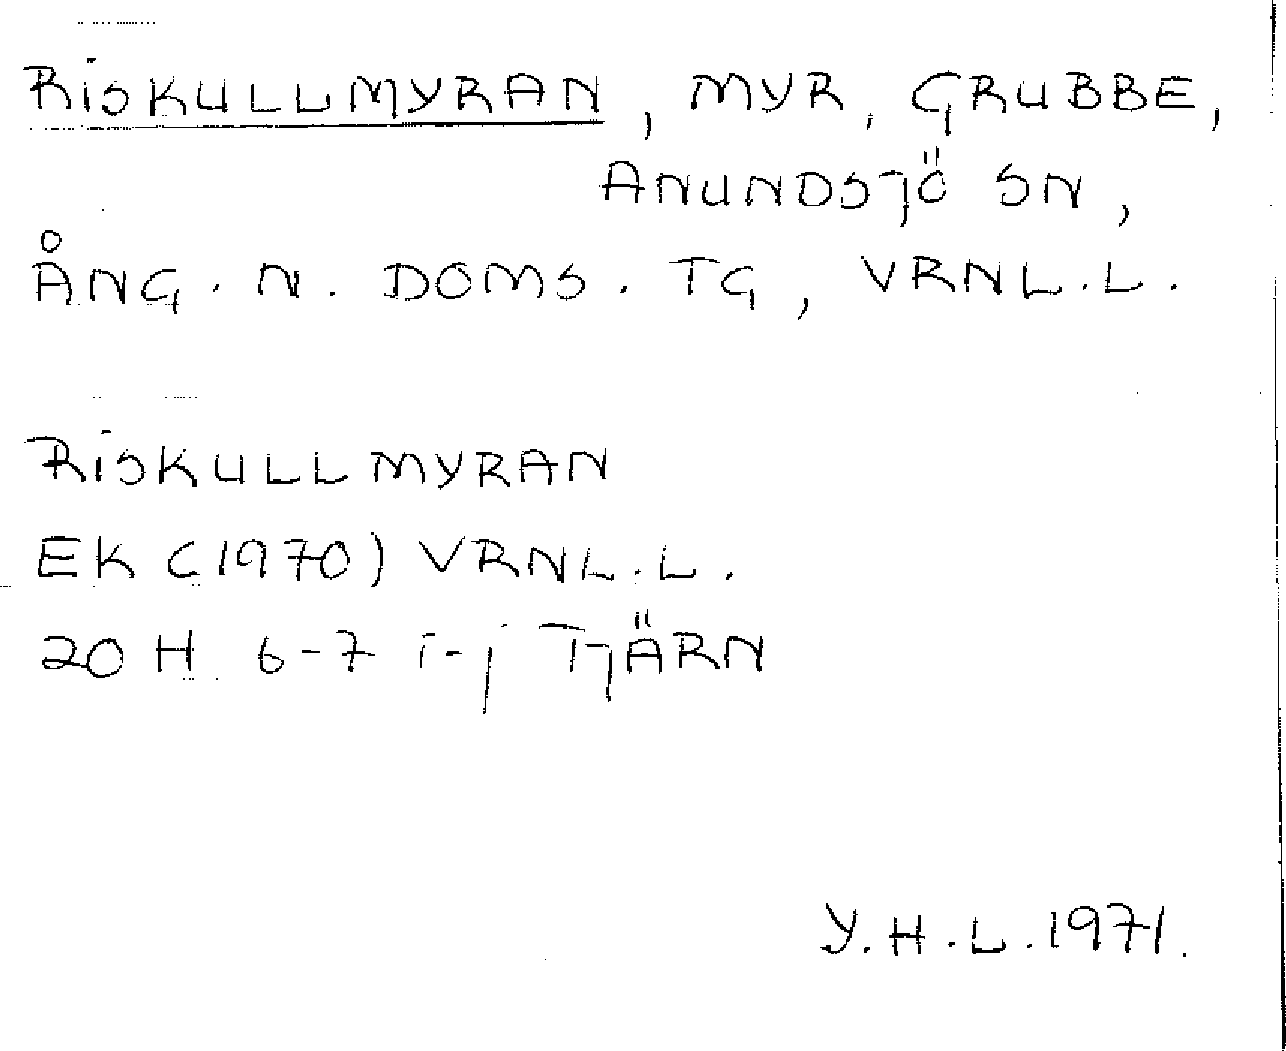 RISKULLMYRAN, MYR, GRUBBE,
ANUNDSJÖ SN,
ÅNG. N. DOMS. TG, VRNL.L.
RISKULLMYRAN
EK (1970) VRNL.L.
20 H 6-7 i-j TJÄRN
Y.H.L. 1971.